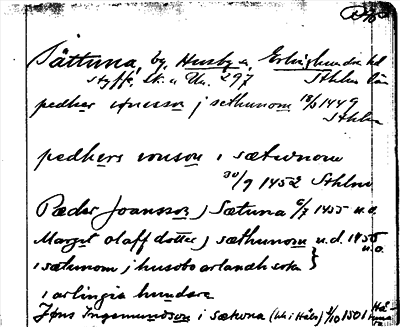 Sättuna, by, Husby s, Erlinghundra hd
Styffe, Sk. u. Un. 297 Sthlm län
pedher ionesson j sethunom 18/3 1449
Sthlm
pedhers ionson i sætwnom
30/9 1452 Sthlm
Pæder Joansson j Sætuna 6/7 1455 u.o.
Margit olaff dotter j sæthunom u.d. 1455
u.o.
i sætunom j husabo arlandh sokn
i arlingia hundare
Jøns Ingemundson i sætwna 1/10 1501